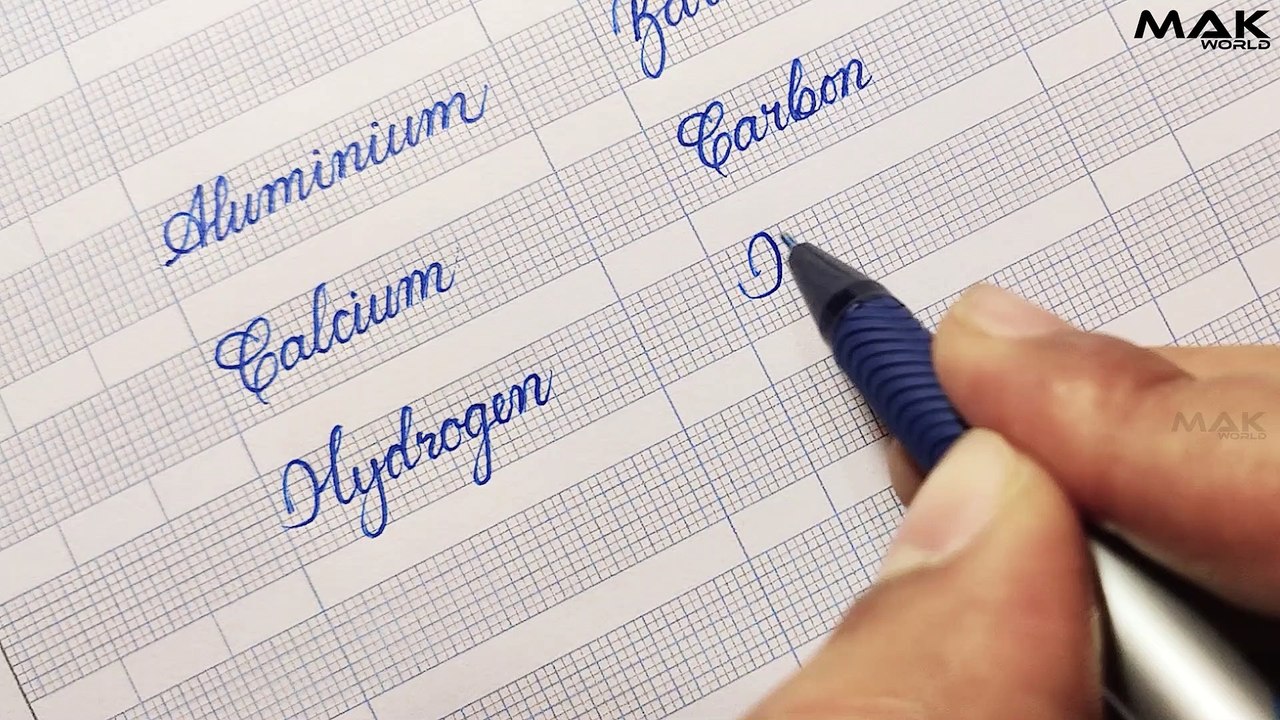 MAK
WORLD
Aluminium
Carbon
Calcium
Hydrogen
MAK
WORLD